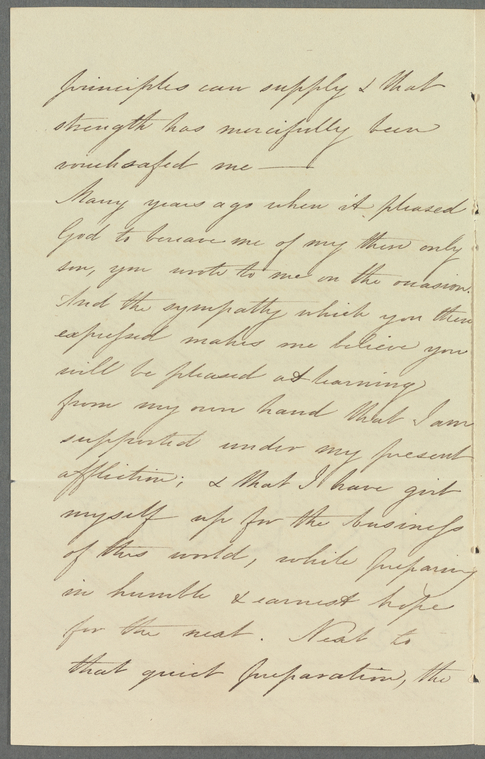 principles can supply & that
strength has mercifully been
vouchsafed me —
Many years ago when it pleased
God to bereave me of my then only
son, you wrote to me on the occasion.
And the sympathy which you then
expressed makes me believe you
will be pleased at learning
from my own hand that I am
supported under my present
affliction; & that I have girt
myself up for the business
of this world, while preparing
in humble & earnest hope
for the next. Next to
that quiet preparation, the